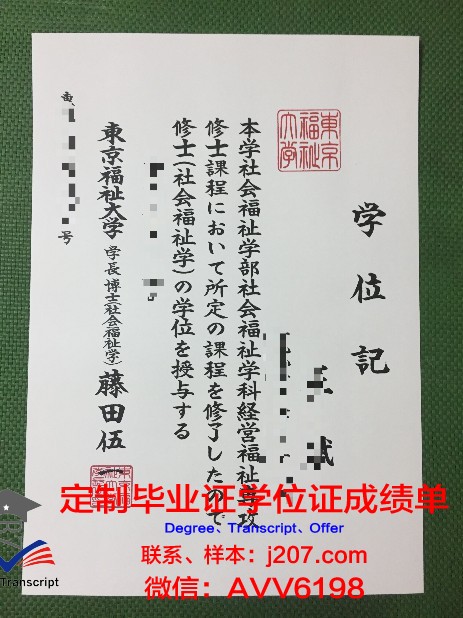 学位記
東京
福祉
大学
本学社会福祉学部社会福祉学科経営福祉専攻
修士課程において所定の課程を修了したので
修士(社会福祉学)の学位を授与する
東京福祉大学 学長 博士(社会福祉学) 藤田伍一
号
定制毕业证学位证成绩单
Degree、Transcript、Offer
联系、样本：j207.com
微信：AVV6198
Transcript